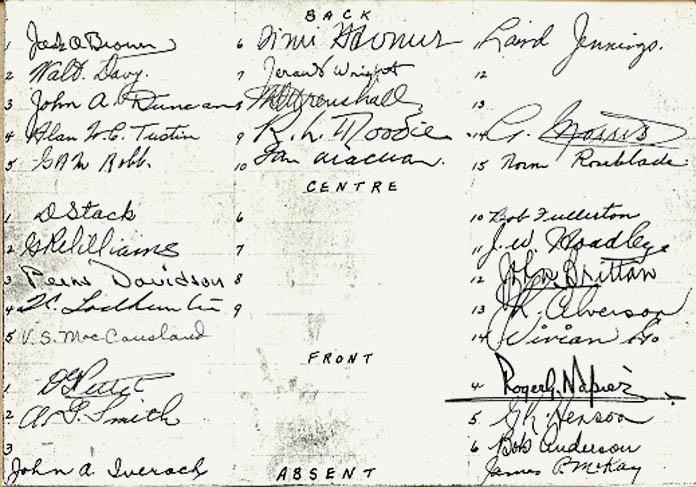 BACK
1 Jack A Brown 6 H 11 Laird Jennings.
2 Walt. Davy. 7 Jerauld Wright 12
3 John A. Duncan 8 13
4 Alan W. C. Tustin 9 R. L. Moodie 14 G. Morris
5 G A M Robb. 10 Ian 15 Norm Roseblade
CENTRE
1 D Stack 6 10 Bob Fullerton
2 G R Williams 7 11 J. W. Hoadley
3 Davidson 8 12 John Brittan
4 9 13 K. Alverson
5 V. S. MacCausland 14 Vivian
FRONT
1 D Pettit 4 Roger G. Napier
2 A. G. Smith 5 G. R. Henson
3 6 Bob Anderson
John A. Iverach James P. McKay
ABSENT